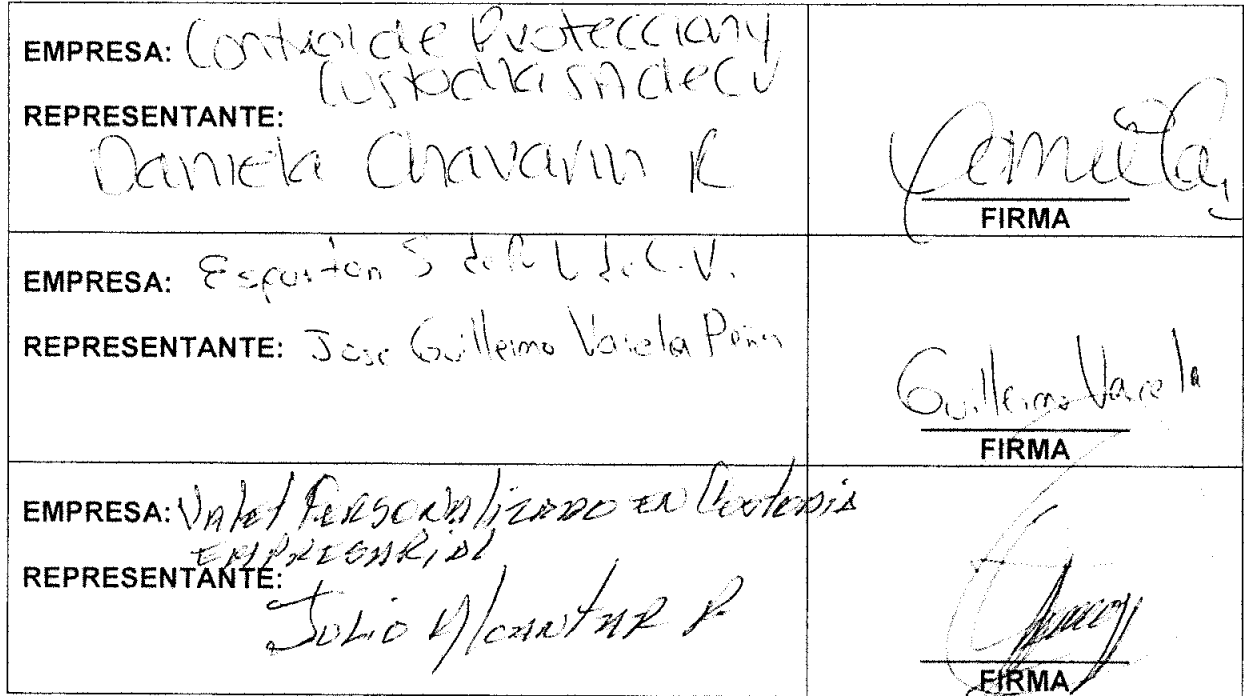 EMPRESA: Control de Proteccion y
Custodia SA de CV
REPRESENTANTE:
Daniela Chavarin R
FIRMA
EMPRESA: S de R L de C.V.
REPRESENTANTE: Jose Guillermo Varela Peña
Guillermo Varela
FIRMA
EMPRESA: Valet PERSONAlizADO EN Custodia
EMPRESARiAl
REPRESENTANTE:
JULiO AlcANTAR P
FIRMA